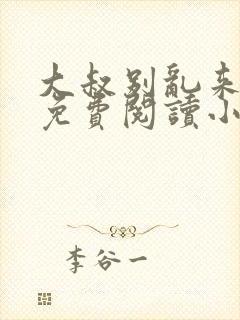 大叔别亂来
免費閱讀小
李谷一